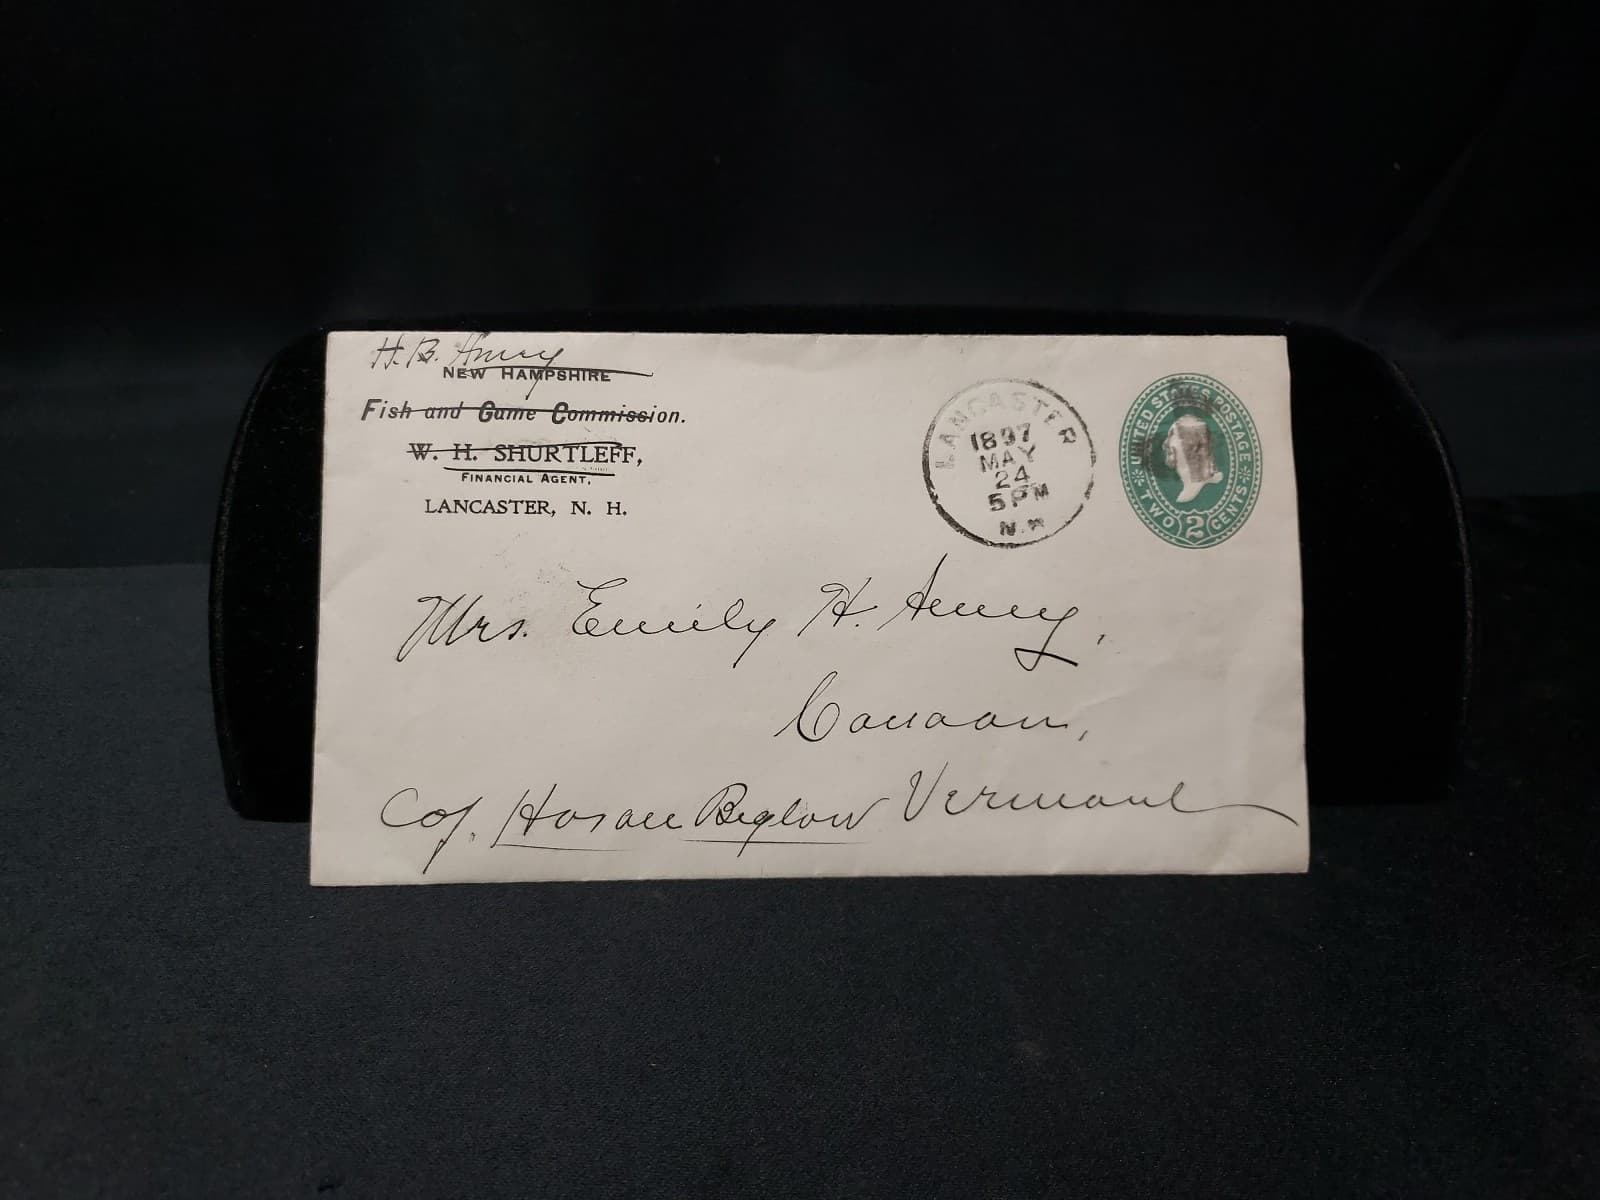 H. B. Amey
NEW HAMPSHIRE
Fish and Game Commission.
W. H. SHURTLEFF,
FINANCIAL AGENT,
LANCASTER, N. H.
LANCASTER
1897
MAY
24
5 PM
N.H.
UNITED STATES POSTAGE
TWO 2 CENTS
Mrs. Emily H. Amey,
Canaan,
Vermont
C/o. Horace Biglow